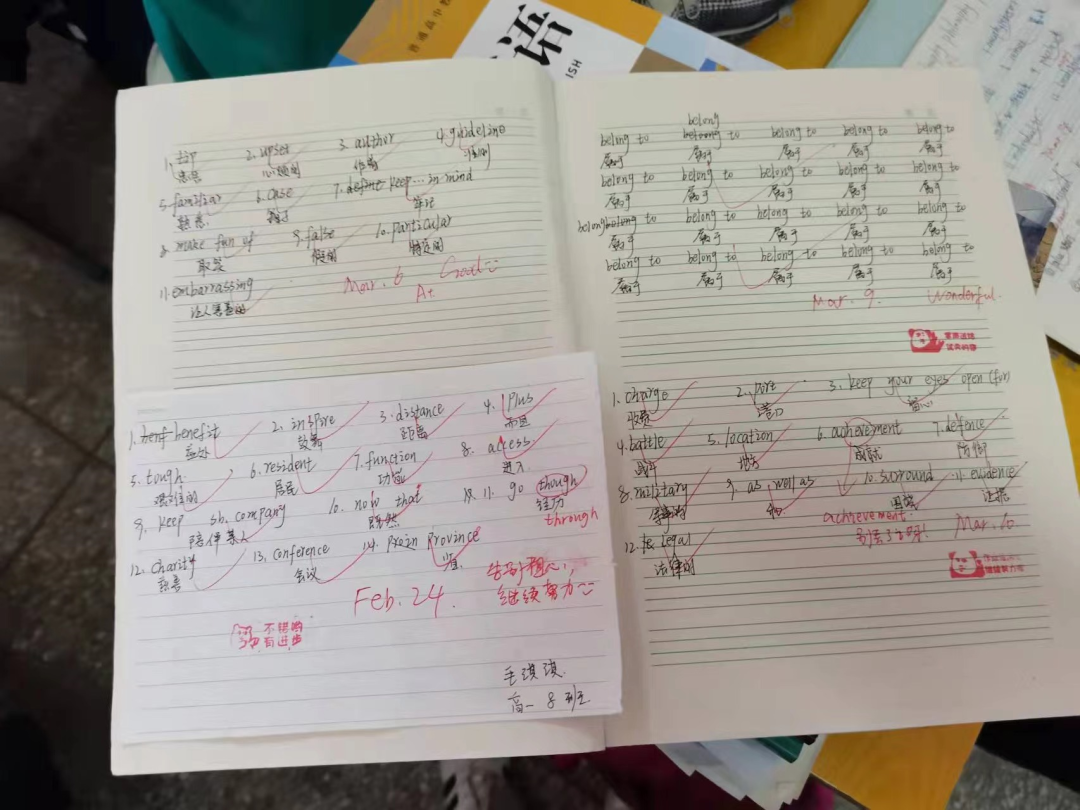 普通高中教
语
1. tip 2. upset 3. author 4. guideline
心烦的 作者
5. familiar 6. case 7. keep... in mind
熟悉 牢记
8. make fun of 9. false 10. particular
取笑 假的 特定的
11. embarrassing
Mar. 6 Good
A+
1. benefit 2. inspire 3. distance 4. plus
益处 鼓舞 距离 而且
5. tough 6. resident 7. function 8. access
困难的 居民 功能 进入
9. keep sb. company 10. now that 11. go though
陪伴某人 既然 经历
through
12. charity 13. conference 14. province
慈善 会议 省
Feb. 24.
继续努力
不错哟
有进步
毛琪琪
高一 8班
belong
belong to belong to belong to belong to
属于 属于 属于 属于 属于
belong to belong to belong to belong to belong to
属于 属于 属于 属于 属于
belong to belong to belong to belong to
属于 属于 属于 属于 属于
belong to belong to belong to belong to belong to
属于 属于 属于 属于 属于
Mar. 9. Wonderful.
1. charge 2. pore 3. keep your eyes open (for)
收费 留心
4. battle 5. location 6. achevement 7. defence
战斗 地方 成就 防御
8. military 9. as well as 10. surround 11. evidence
军事的 和 围绕 证据
achievement
Mar. 10
12. legal
法律的